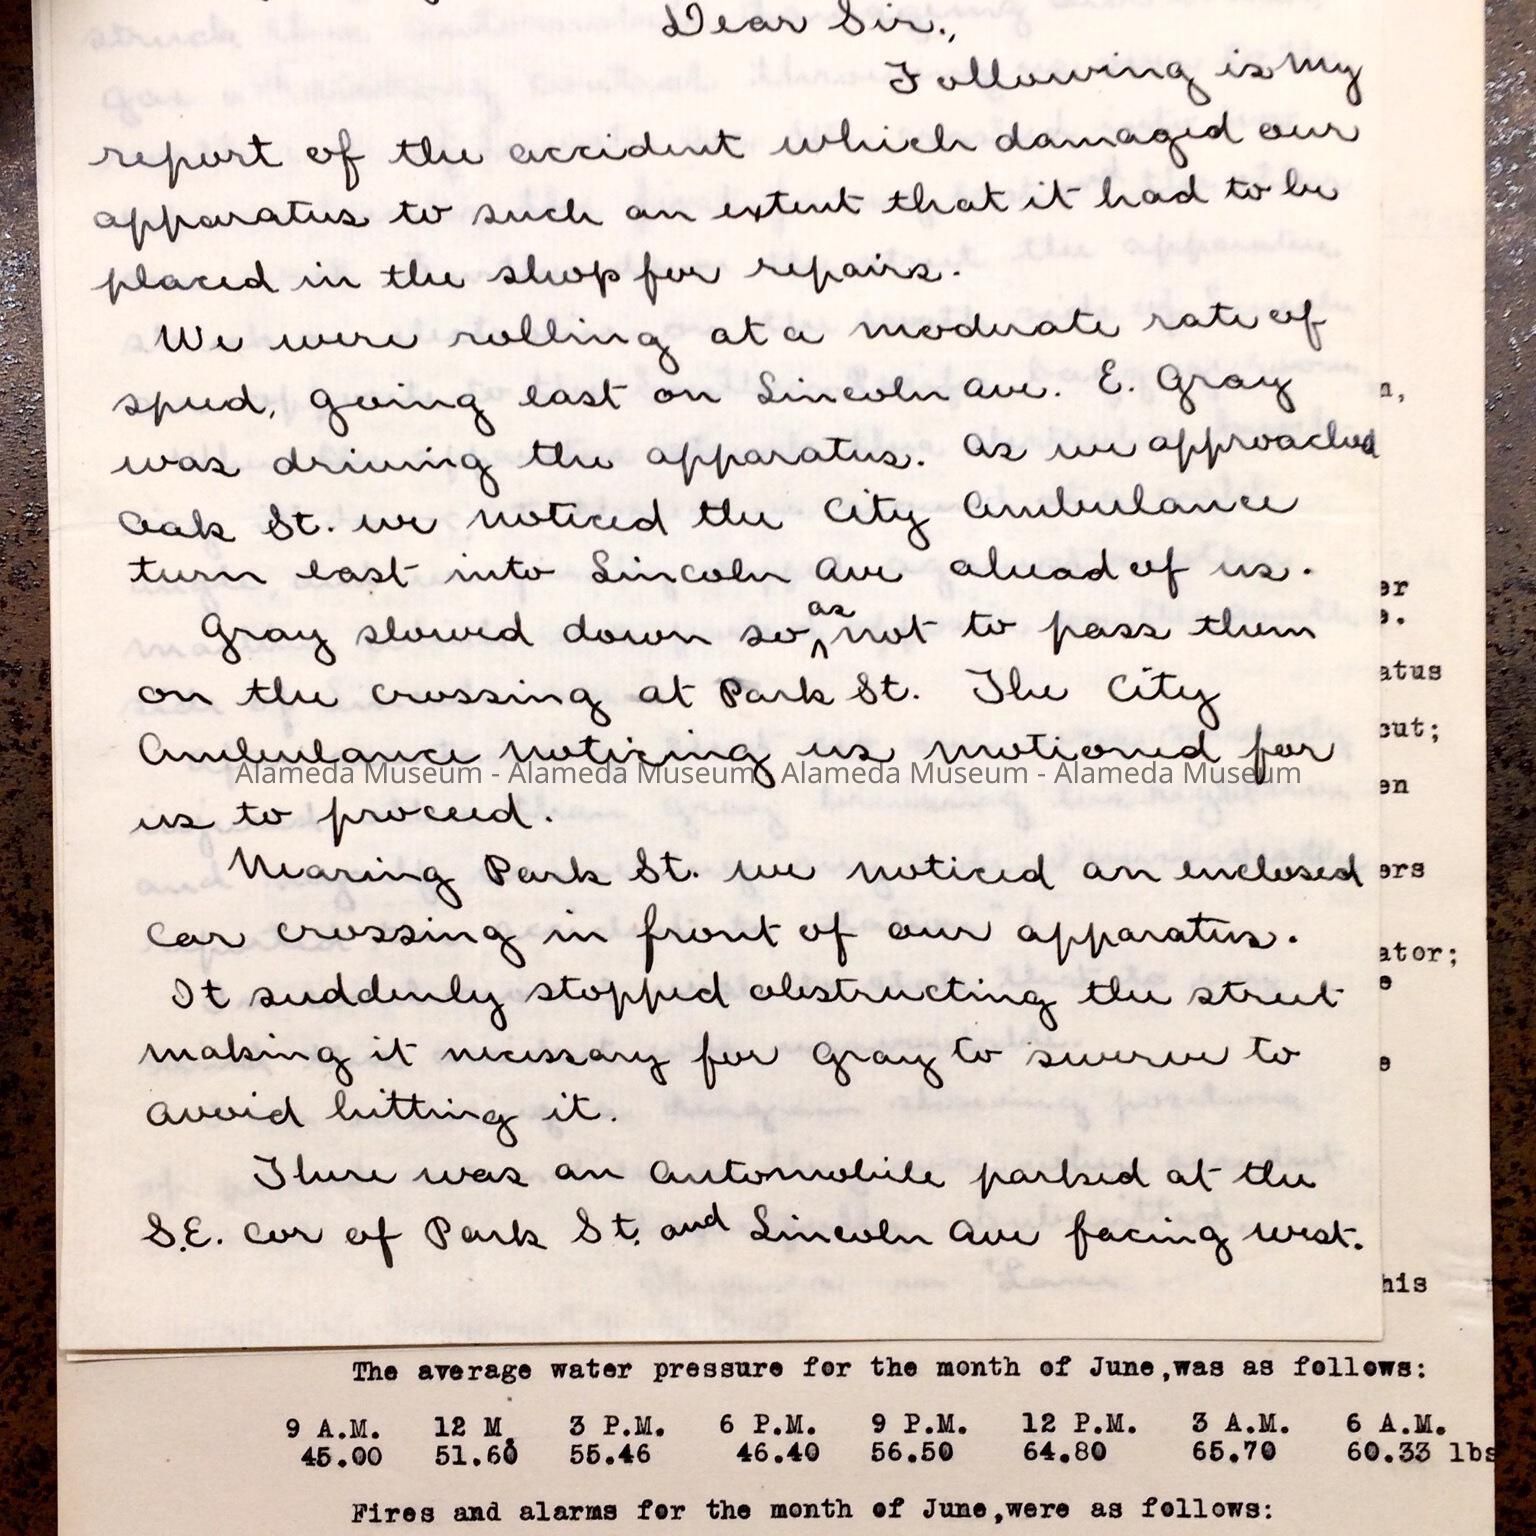 Dear Sir.,
Following is my
report of the accident which damaged our
apparatus to such an extent that it had to be
placed in the shop for repairs.
We were rolling at a moderate rate of
speed, going east on Lincoln Ave. E. Gray
was driving the apparatus. As we approached
Oak St. we noticed the City Ambulance
turn east into Lincoln Ave ahead of us.
Gray slowed down so as not to pass them
on the crossing at Park St. The City
Ambulance noticing us motioned for
Alameda Museum - Alameda Museum - Alameda Museum - Alameda Museum
us to proceed.
Nearing Park St. we noticed an enclosed
Car crossing in front of our apparatus.
It suddenly stopped obstructing the street
making it necessary for Gray to swerve to
avoid hitting it.
There was an automobile parked at the
S.E. Cor of Park St. and Lincoln Ave facing west.
n,
er
e.
atus
cut;
en
ers
ator;
e
e
his
The average water pressure for the month of June,was as follows:
9 A.M. 12 M. 3 P.M. 6 P.M. 9 P.M. 12 P.M. 3 A.M. 6 A.M.
45.00 51.60 55.46 46.40 56.50 64.80 65.70 60.33 lbs
Fires and alarms for the month of June,were as follows: